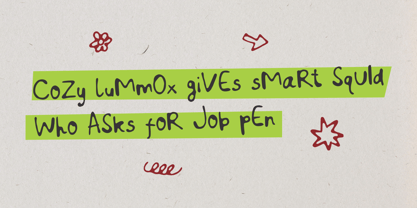 CoZy luMmOx giVEs sMaRt SquId
Who ASks foR Job pEn